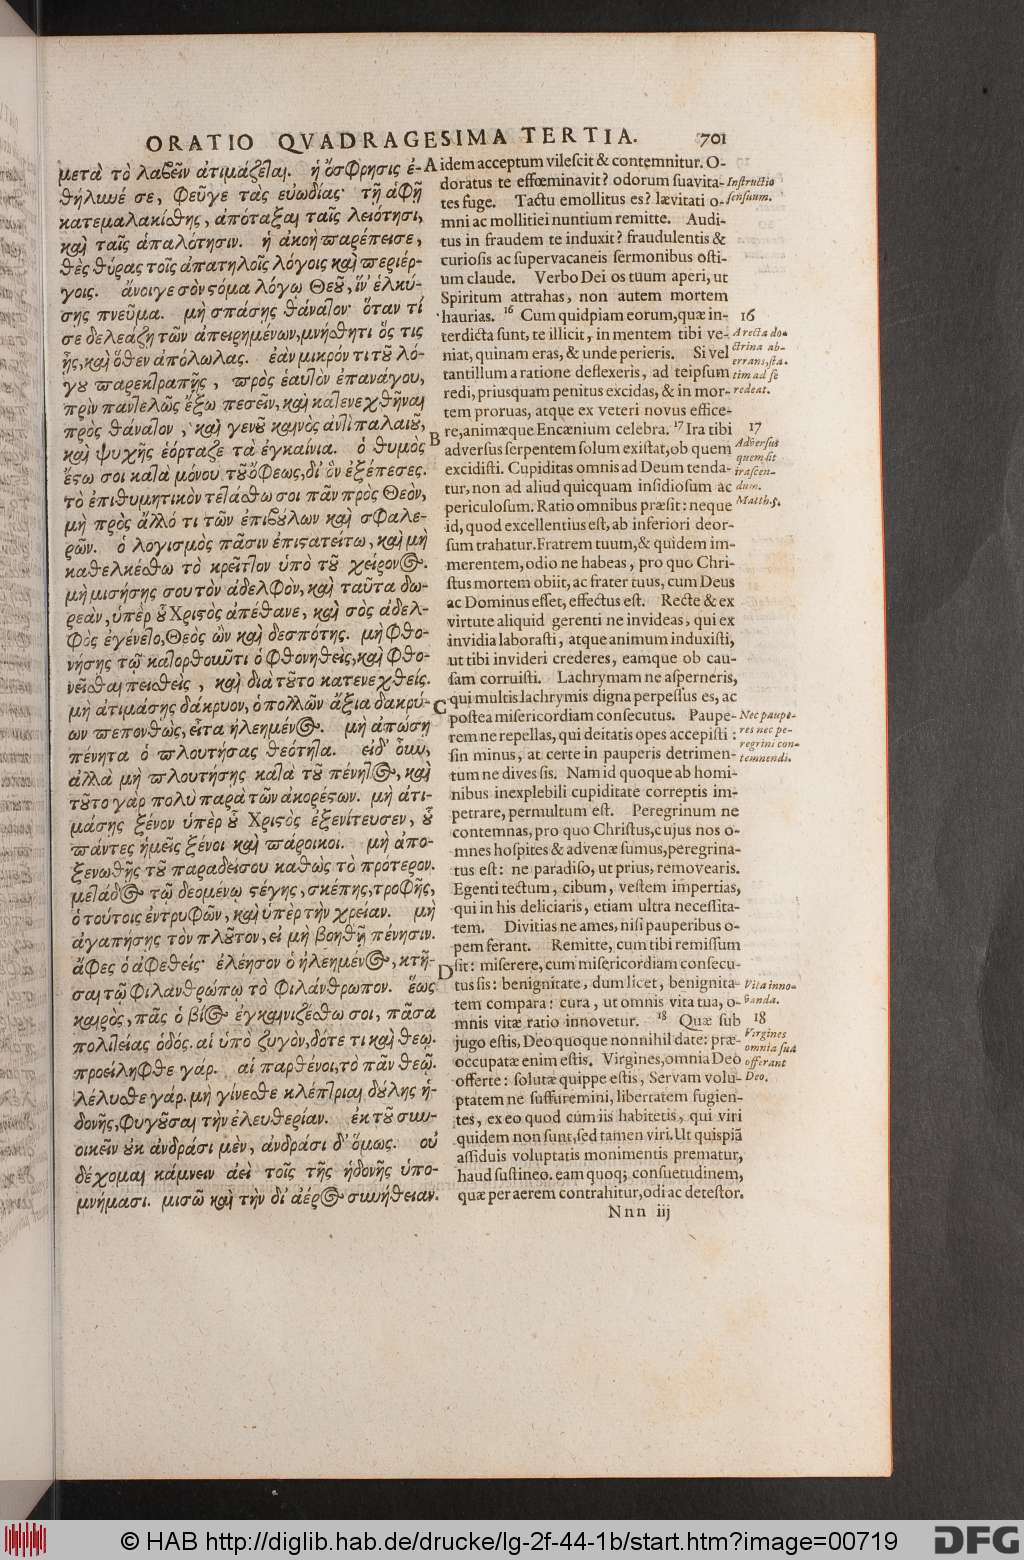 ORATIO QVADRAGESIMA TERTIA. 701
μετὰ τὸ λαβεῖν ἀτιμάζεται. ἡ ὄσφρησις ἐ-
θήλυνέ σε, φεῦγε τὰς εὐωδίας· τῇ ἁφῇ
κατεμαλακίσθης, ἀπόταξαι ταῖς λειότησι,
καὶ ταῖς ἁπαλότησιν. ἡ ἀκοὴ παρέπεισε,
θὲς θύρας τοῖς ἀπατηλοῖς λόγοις καὶ περιέρ-
γοις. ἄνοιγε σὸν στόμα λόγῳ Θεοῦ, ἵν' ἑλκύ-
σῃς πνεῦμα. μὴ σπάσῃς θάνατον· ὅταν τί
σε δελεάζῃ τῶν ἀπειρημένων, μνήσθητι ὅς τις
ἦς, καὶ ὅθεν ἀπόλωλας. ἐὰν μικρόν τι τοῦ λό-
γου παρεκτραπῇς, πρὸς ἑαυτὸν ἐπανάγου,
πρὶν παντελῶς ἔξω πεσεῖν, καὶ κατενεχθῆναι
πρὸς θάνατον, καὶ γενοῦ καινὸς ἀντὶ παλαιοῦ,
καὶ ψυχῆς ἑόρταζε τὰ ἐγκαίνια. ὁ θυμὸς
ἔστω σοι κατὰ μόνου τοῦ ὄφεως, δι' ὃν ἐξέπεσες.
τὸ ἐπιθυμητικὸν τετάσθω σοι πᾶν πρὸς Θεὸν,
μὴ πρὸς ἄλλό τι τῶν ἐπιβούλων καὶ σφαλε-
ρῶν. ὁ λογισμὸς πᾶσιν ἐπιστατείτω, καὶ μὴ
καθελκέσθω τὸ κρεῖττον ὑπὸ τοῦ χείρονος.
μὴ μισήσῃς σου τὸν ἀδελφὸν, καὶ ταῦτα δω-
ρεὰν, ὑπὲρ οὗ Χριστὸς ἀπέθανε, καὶ σὸς ἀδελ-
φὸς ἐγένετο, Θεὸς ὢν καὶ δεσπότης. μὴ φθο-
νήσῃς τῷ κατορθοῦντι ὁ φθονηθεὶς, καὶ φθο-
νεῖσθαι πεισθεὶς, καὶ διὰ τοῦτο κατενεχθείς.
μὴ ἀτιμάσῃς δάκρυον, ὁ πολλῶν ἄξια δακρύ-
ων πεπονθὼς, εἶτα ἠλεημένος. μὴ ἀπώσῃ
πένητα ὁ πλουτήσας θεότητα. εἰ δ' οὖν,
ἀλλὰ μὴ πλουτήσῃς κατὰ τοῦ πένητος, καὶ
τοῦτο γὰρ πολὺ παρὰ τῶν ἀκορέστων. μὴ ἀτι-
μάσῃς ξένον ὑπὲρ οὗ Χριστὸς ἐξενίτευσεν, οὗ
πάντες ἡμεῖς ξένοι καὶ πάροικοι. μὴ ἀπο-
ξενωθῇς τοῦ παραδείσου καθὼς τὸ πρότερον.
μετάδος τῷ δεομένῳ στέγης, σκέπης, τροφῆς,
ὁ τούτοις ἐντρυφῶν, καὶ ὑπὲρ τὴν χρείαν. μὴ
ἀγαπήσῃς τὸν πλοῦτον, εἰ μὴ βοηθῇ πένησιν.
ἄφες ὁ ἀφεθείς· ἐλέησον ὁ ἠλεημένος, κτῆ-
σαι τῷ φιλανθρώπῳ τὸ φιλάνθρωπον. ἕως
καιρὸς, πᾶς ὁ βίος ἐγκαινιζέσθω σοι, πᾶσα
πολιτείας ὁδός. αἱ ὑπὸ ζυγὸν, δότε τι καὶ θεῷ.
προείληφθε γάρ. αἱ παρθένοι, τὸ πᾶν θεῷ.
λέλυσθε γάρ. μὴ γίνεσθε κλέπτριαι δούλης ἡ-
δονῆς, φυγοῦσαι τὴν ἐλευθερίαν. ἐκ τοῦ συν-
οικεῖν οὐκ ἀνδράσι μὲν, ἀνδράσι δ' ὅμως. οὐ
δέχομαι κάμνειν ἀεὶ τοῖς τῆς ἡδονῆς ὑπο-
μνήμασι. μισῶ καὶ τὴν δι' ἀέρος συνήθειαν.
A
B
C
D
idem acceptum vilescit & contemnitur. O-
doratus te effœminavit? odorum suavita-
tes fuge. Tactu emollitus es? lævitati o-
mni ac mollitiei nuntium remitte. Audi-
tus in fraudem te induxit? fraudulentis &
curiosis ac supervacaneis sermonibus osti-
um claude. Verbo Dei os tuum aperi, ut
Spiritum attrahas, non autem mortem
haurias. 16 Cum quidpiam eorum, quæ in-
terdicta sunt, te illicit, in mentem tibi ve-
niat, quinam eras, & unde perieris. Si vel
tantillum a ratione deflexeris, ad teipsum
redi, priusquam penitus excidas, & in mor-
tem proruas, atque ex veteri novus effice-
re, animæque Encænium celebra. 17 Ira tibi
adversus serpentem solum existat, ob quem
excidisti. Cupiditas omnis ad Deum tenda-
tur, non ad aliud quicquam insidiosum ac
periculosum. Ratio omnibus præsit: neque
id, quod excellentius est, ab inferiori deor-
sum trahatur. Fratrem tuum, & quidem im-
merentem, odio ne habeas, pro quo Chri-
stus mortem obiit, ac frater tuus, cum Deus
ac Dominus esset, effectus est. Recte & ex
virtute aliquid gerenti ne invideas, qui ex
invidia laborasti, atque animum induxisti,
ut tibi invideri crederes, eamque ob cau-
sam corruisti. Lachrymam ne asperneris,
qui multis lachrymis digna perpessus es, ac
postea misericordiam consecutus. Paupe-
rem ne repellas, qui deitatis opes accepisti:
sin minus, at certe in pauperis detrimen-
tum ne dives sis. Nam id quoque ab homi-
nibus inexplebili cupiditate correptis im-
petrare, permultum est. Peregrinum ne
contemnas, pro quo Christus, cujus nos o-
mnes hospites & advenæ sumus, peregrina-
tus est: ne paradiso, ut prius, removearis.
Egenti tectum, cibum, vestem impertias,
qui in his deliciaris, etiam ultra necessita-
tem. Divitias ne ames, nisi pauperibus o-
pem ferant. Remitte, cum tibi remissum
sit: miserere, cum misericordiam consecu-
tus sis: benignitate, dum licet, benignita-
tem compara: cura, ut omnis vita tua, o-
mnis vitæ ratio innovetur. 18 Quæ sub
jugo estis, Deo quoque nonnihil date: præ-
occupatæ enim estis. Virgines, omnia Deo
offerte: solutæ quippe estis, Servam volu-
ptatem ne suffuremini, libertatem fugien-
tes, ex eo quod cum iis habitetis, qui viri
quidem non sunt, sed tamen viri. Ut quispiã
assiduis voluptatis monimentis prematur,
haud sustineo. eam quoq; consuetudinem,
quæ per aerem contrahitur, odi ac detestor.
Instructio
sensuum.
16
A recta do-
ctrina ab-
errans, sta-
tim ad se
redeat.
17
Adversus
quem sit
irascen-
dum.
Matth. 5.
Nec paupe-
res nec pe-
regrini con-
temnendi.
Vita inno-
vanda.
18
Virgines
omnia sua
offerant
Deo.
Nnn iij
© HAB http://diglib.hab.de/drucke/lg-2f-44-1b/start.htm?image=00719
DFG